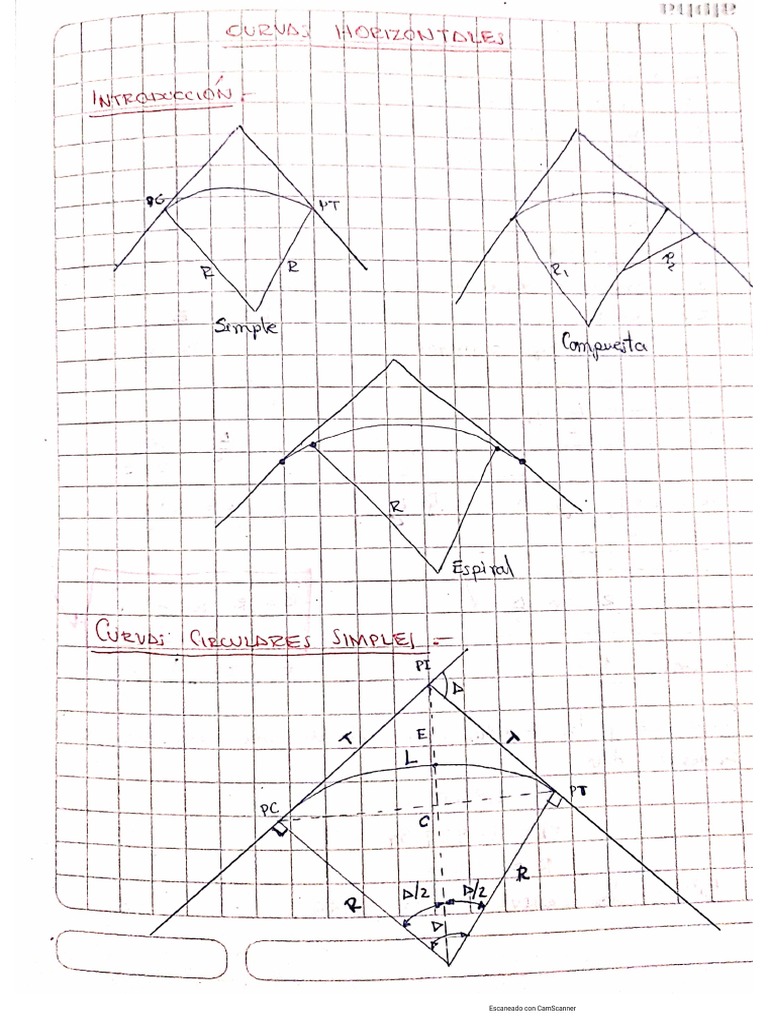 CURVAS HORIZONTALES
INTRODUCCIÓN.-
PC
PT
R
R
Simple
R1
R2
Compuesta
R
Espiral
CURVAS CIRCULARES SIMPLES.-
PI
Δ
T
E
T
L
PC
PT
C
R
Δ/2
Δ/2
R
Δ
Escaneado con CamScanner